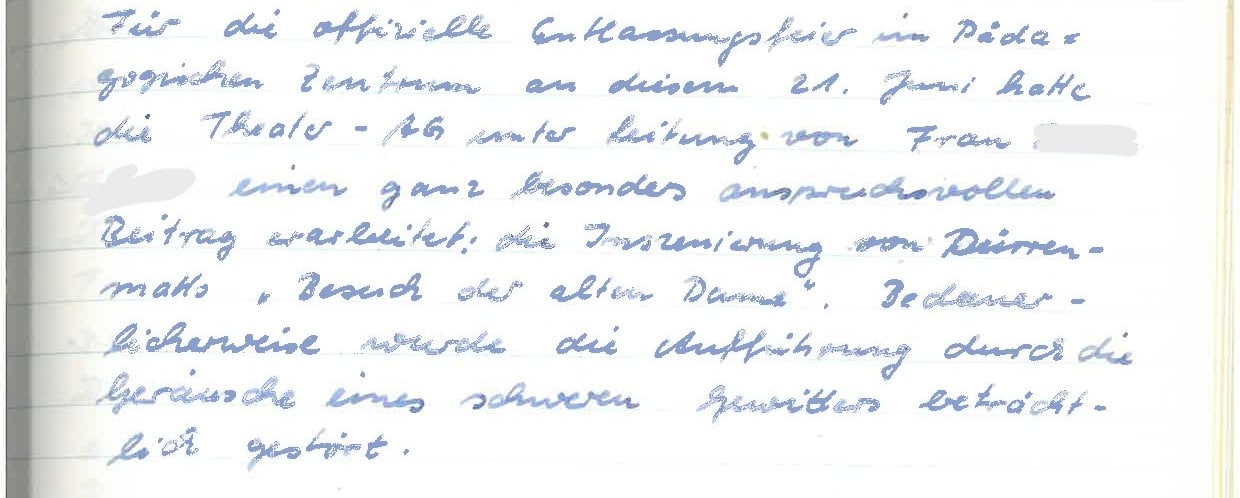 Für die offizielle Entlassungsfeier im Päda=
gogischen Zentrum an diesem 21. Juni hatte
die Theater-AG unter Leitung von Frau
einen ganz besonders anspruchsvollen
Beitrag erarbeitet: die Inszenierung von Dürren-
matts „Besuch der alten Dame". Bedauer-
licherweise wurde die Aufführung durch die
Geräusche eines schweren Gewitters beträcht-
lich gestört.